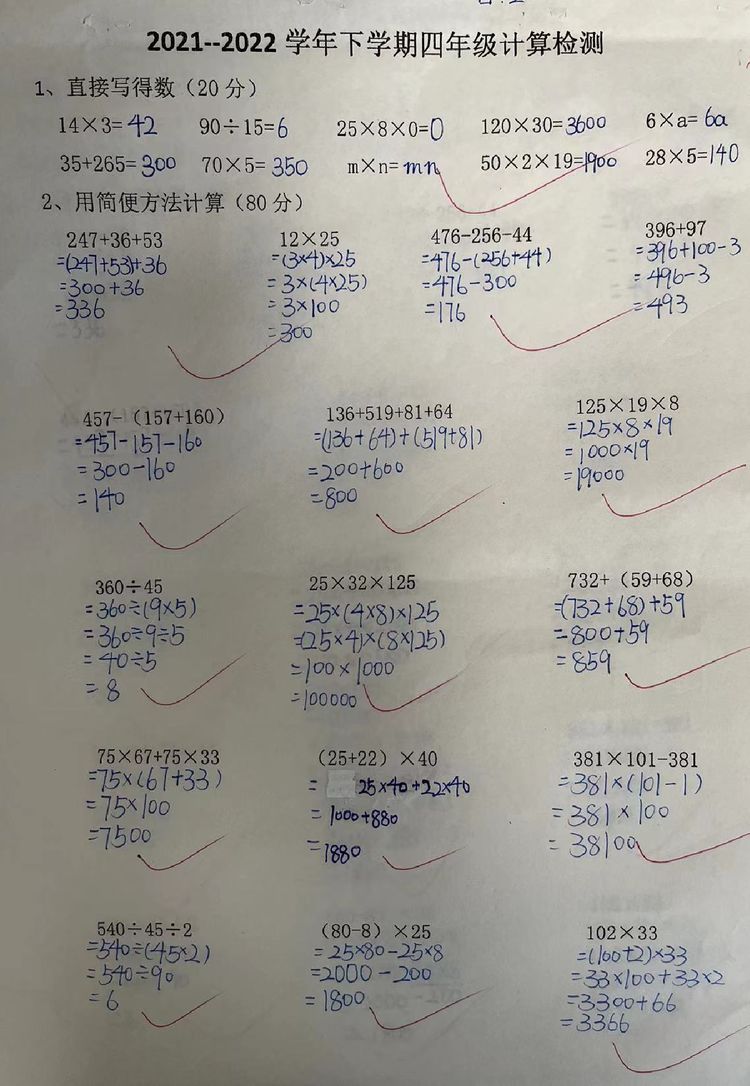 2021--2022 学年下学期四年级计算检测
1、直接写得数（20 分）
14×3=42 90÷15=6 25×8×0=0 120×30=3600 6×a=6a
35+265=300 70×5=350 m×n=mn 50×2×19=1900 28×5=140
2、用简便方法计算（80 分）
247+36+53
=(247+53)+36
=300+36
=336
12×25
=(3×4)×25
=3×(4×25)
=3×100
=300
476-256-44
=476-(256+44)
=476-300
=176
396+97
=396+100-3
=496-3
=493
457-（157+160）
=457-157-160
=300-160
=140
136+519+81+64
=(136+64)+(519+81)
=200+600
=800
125×19×8
=125×8×19
=1000×19
=19000
360÷45
=360÷(9×5)
=360÷9÷5
=40÷5
=8
25×32×125
=25×(4×8)×125
=(25×4)×(8×125)
=100×1000
=100000
732+（59+68）
=(732+68)+59
=800+59
=859
75×67+75×33
=75×(67+33)
=75×100
=7500
（25+22）×40
=25×40+22×40
=1000+880
=1880
381×101-381
=381×(101-1)
=381×100
=38100
540÷45÷2
=540÷(45×2)
=540÷90
=6
（80-8）×25
=25×80-25×8
=2000-200
=1800
102×33
=(100+2)×33
=33×100+33×2
=3300+66
=3366